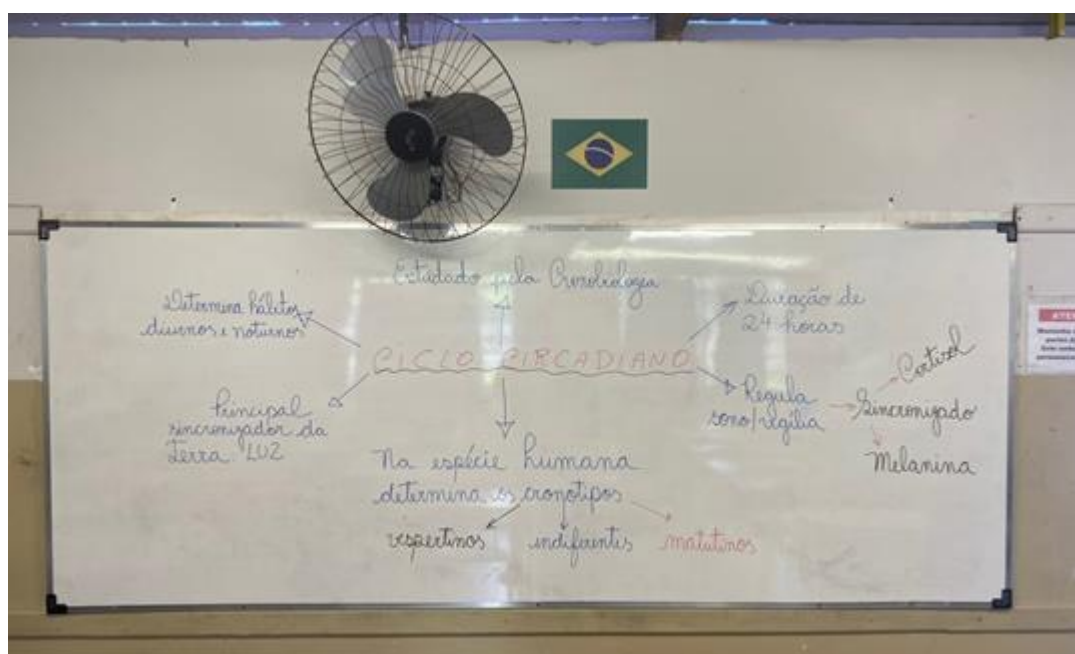 Estudado pela Cronobiologia
Determina hábitos
diurnos e noturnos
Duração de
24 horas
CICLO CIRCADIANO
Principal
sincronizador da
Terra: LUZ
Regula
sono/vigília
Sincronizado
Cortisol
Melanina
Na espécie humana
determina os cronotipos
vespertinos
indiferentes
matutinos